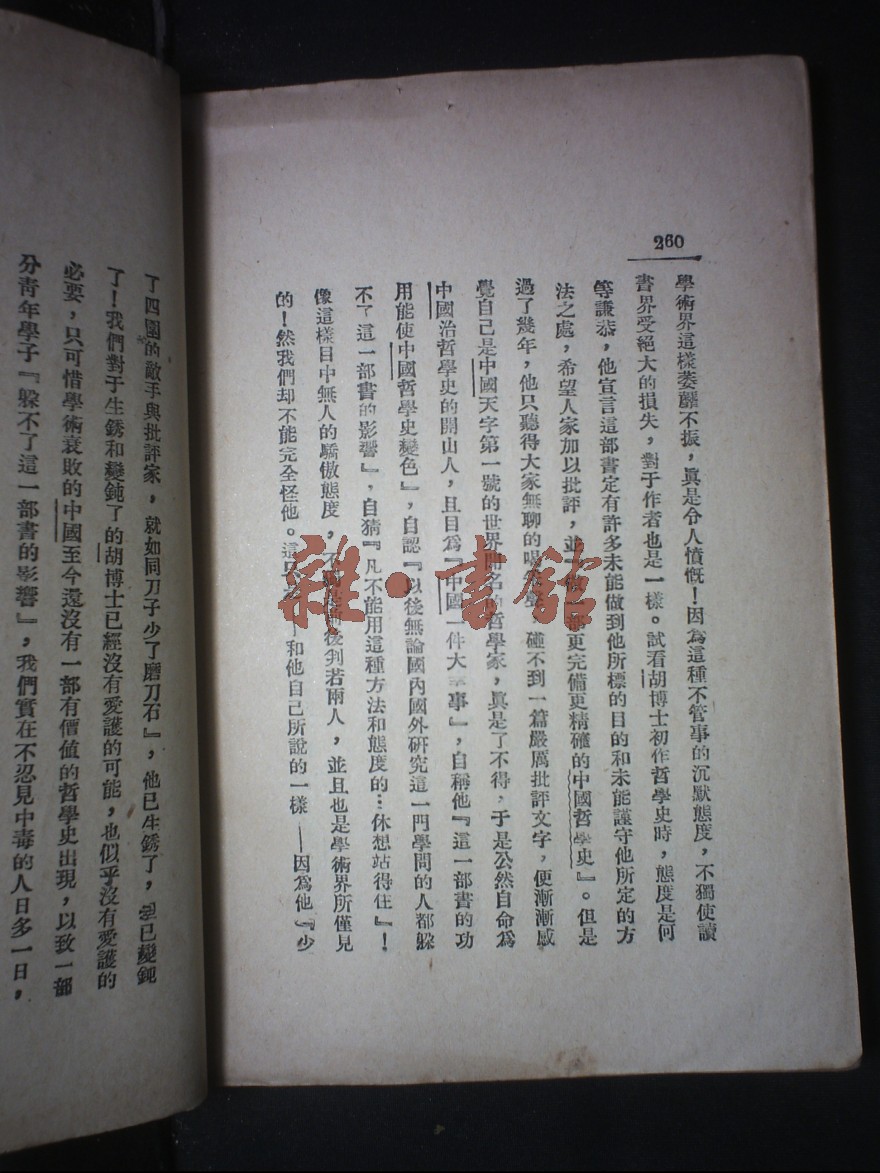 260
學術界這樣萎靡不振，眞是令人憤慨！因為這種不管事的沉默態度，不獨使讀
書界受絕大的損失，對于作者也是一樣。試看胡博士初作哲學史時，態度是何
等謙恭，他宣言這部書定有許多未能做到他所標的目的和未能謹守他所定的方
法之處，希望人家加以批評，並『做一部更完備更精確的中國哲學史』。但是
過了幾年，他只聽得大家無聊的喝采聲，碰不到一篇嚴厲批評文字，便漸漸感
覺自己是中國天字第一號的世界聞名的哲學家，眞是了不得，于是公然自命為
中國治哲學史的開山人，且目為『中國一件大事』，自稱他『這一部書的功
用能使中國哲學史變色』，自認『以後無論國內國外研究這一門學問的人都躲
不了這一部書的影響』，自猜『凡不能用這種方法和態度的…休想站得住』！
像這樣目中無人的驕傲態度，不獨 前後判若兩人，並且也是學術界所僅見
的！然我們却不能完全怪他。這只 和他自己所說的一樣——因爲他『少
了四圍的敵手與批評家，就如同刀子少了磨刀石』，他已生銹了，已變鈍
了！我們對于生銹和變鈍了的胡博士已經沒有愛護的可能，也似乎沒有愛護的
必要，只可惜學術衰敗的中國至今還沒有一部有價值的哲學史出現，以致一部
分青年學子『躲不了這一部書的影響』，我們實在不忍見中毒的人日多一日，
雜·書館